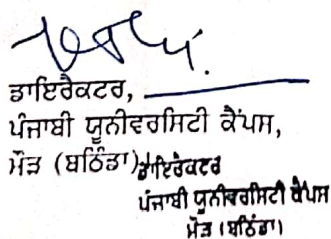 ਡਾਇਰੈਕਟਰ,
ਪੰਜਾਬੀ ਯੂਨੀਵਰਸਿਟੀ ਕੈਂਪਸ,
ਮੌੜ (ਬਠਿੰਡਾ)
ਡਾਇਰੈਕਟਰ
ਪੰਜਾਬੀ ਯੂਨੀਵਰਸਿਟੀ ਕੈਂਪਸ
ਮੌੜ (ਬਠਿੰਡਾ)